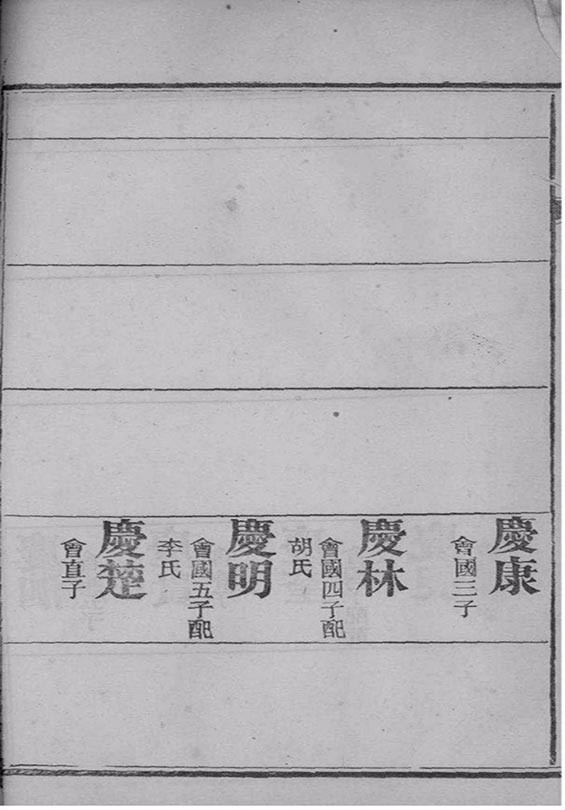 慶康
會國三子
慶林
會國四子配
胡氏
慶明
會國五子配
李氏
慶楚
會直子